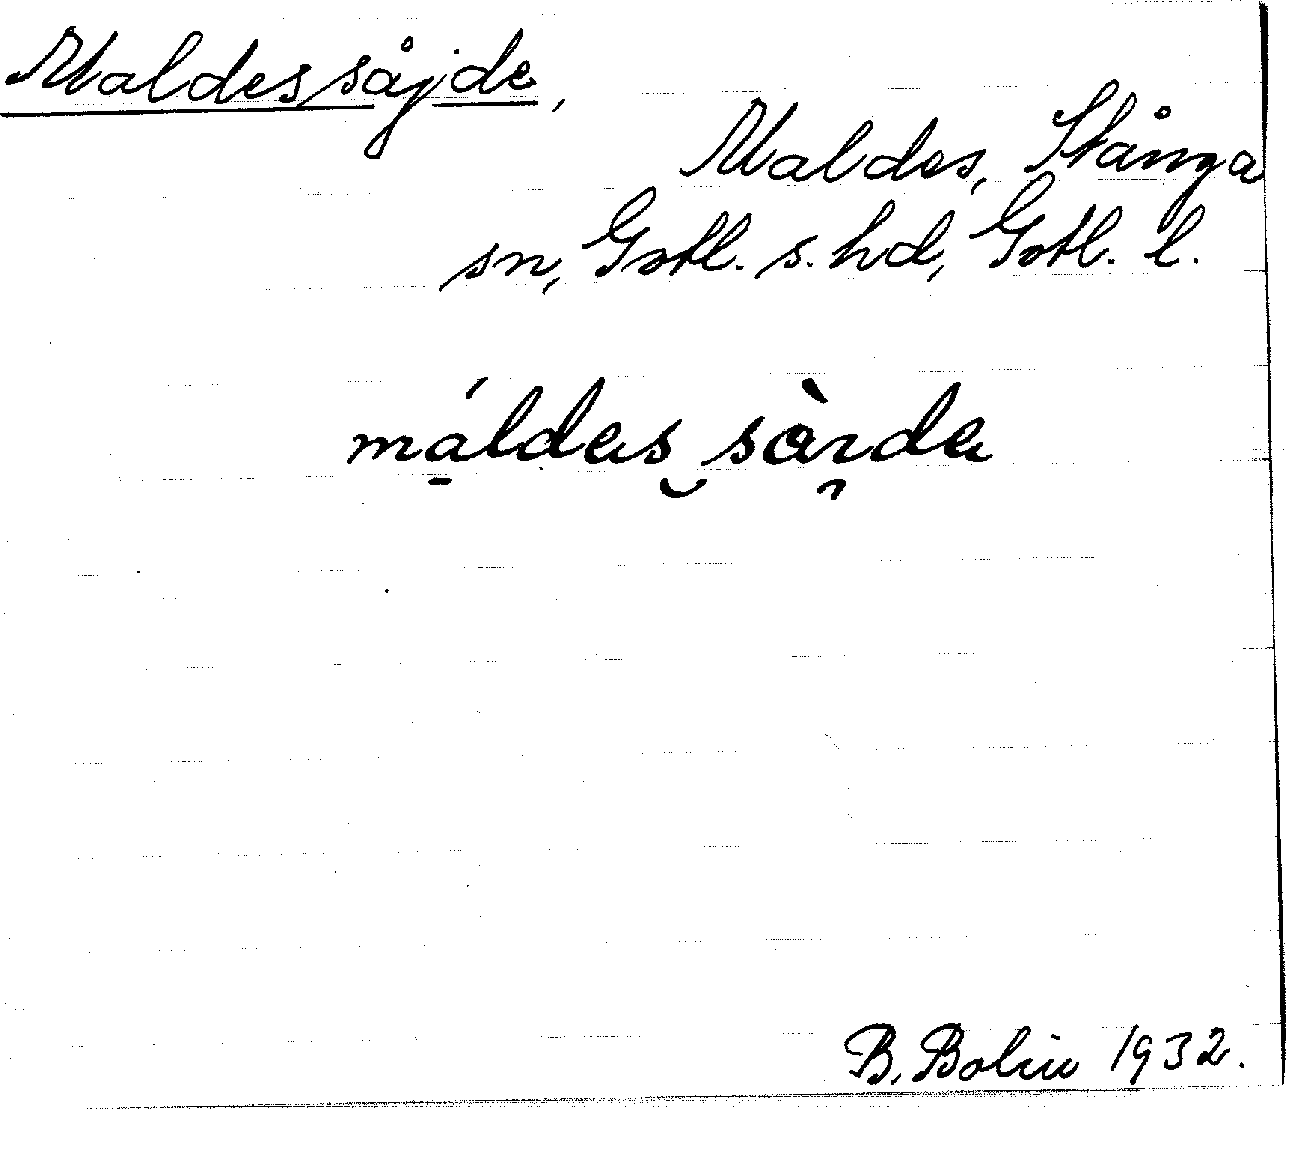 Maldessåjde,
Maldes, Stånga
sn, Gotl. s. hd, Gotl. l.
máldas sàɿda
B. Bolin 1932.